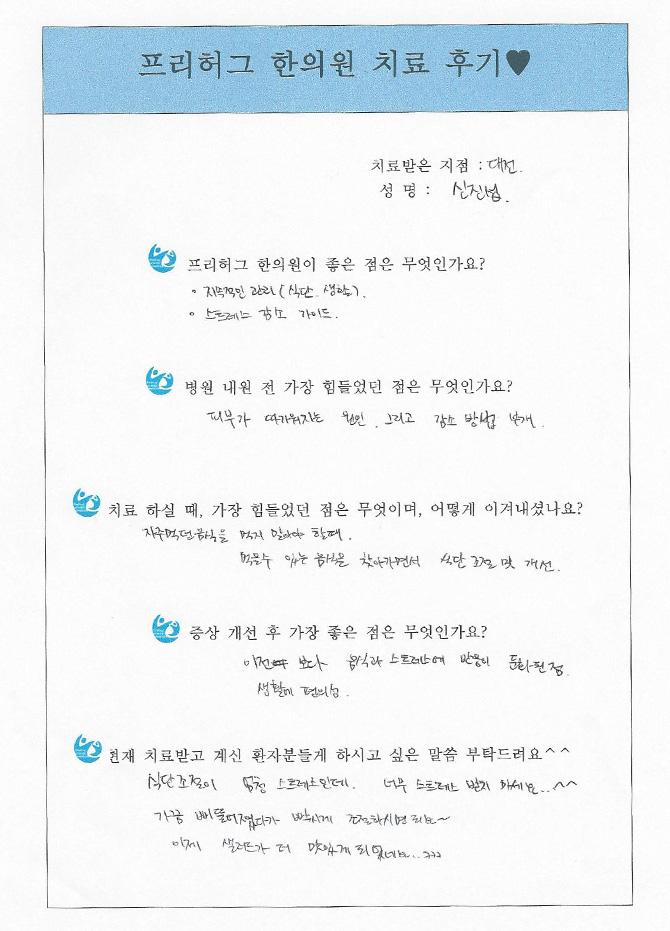 프리허그 한의원 치료 후기♥
치료받은 지점 : 대전.
성 명 : 신진섭.
프리허그 한의원이 좋은 점은 무엇인가요?
◦ 지속적인 관리 (식단. 생활).
◦ 스트레스 감소 가이드.
병원 내원 전 가장 힘들었던 점은 무엇인가요?
피부가 따가워지는 원인. 그리고 감소 방법 부재.
치료 하실 때, 가장 힘들었던 점은 무엇이며, 어떻게 이겨내셨나요?
자주먹던음식을 먹지 말아야 할때.
먹을수 있는 음식을 찾아가면서 식단 조절 및 개선.
증상 개선 후 가장 좋은 점은 무엇인가요?
이전 보다 음식과 스트레스에 반응이 둔화된 점.
생활에 편의성.
현재 치료받고 계신 환자분들게 하시고 싶은 말씀 부탁드려요^^
식단조절이 엄청 스트레스인데. 너무 스트레스 받지 마세요..^^
가끔 삐뚤어졌다가 빡시게 조절하시면 되요~
이제 샐러드가 더 맛있게 되었네요..ㅋㅋㅋ